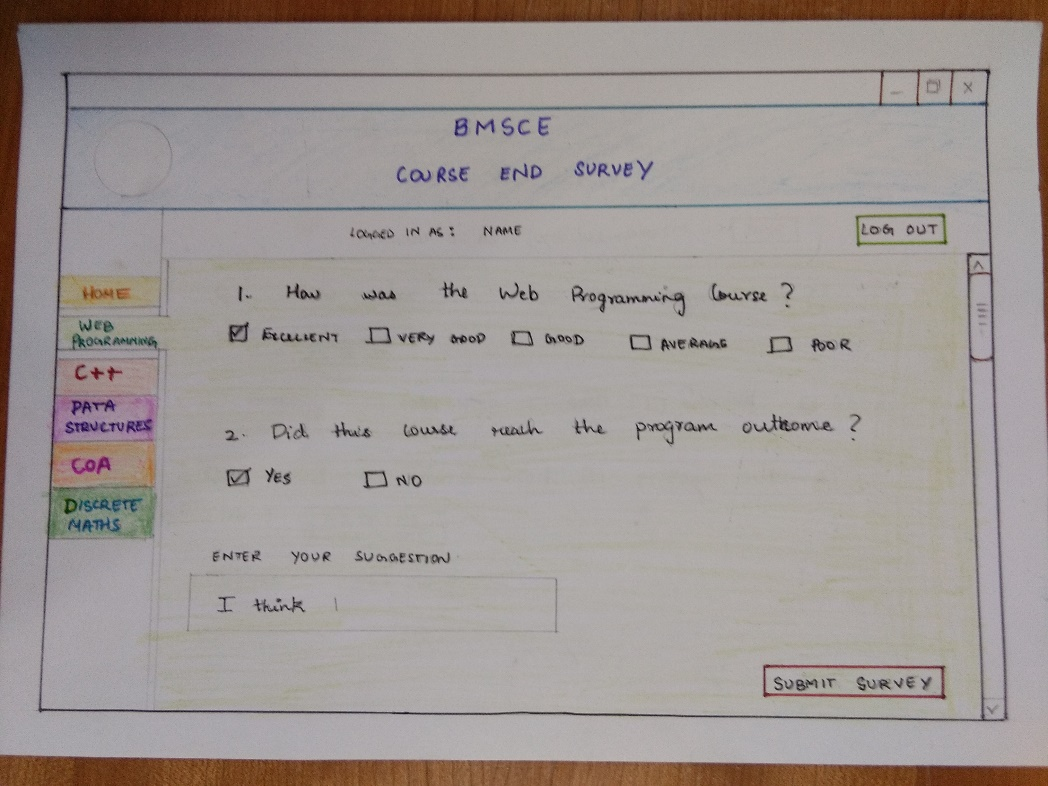 BMSCE
COURSE END SURVEY
LOGGED IN AS: NAME
LOG OUT
HOME
WEB
PROGRAMMING
C++
DATA
STRUCTURES
COA
DISCRETE
MATHS
1. How was the Web Programming Course?
EXCELLENT VERY GOOD GOOD AVERAGE POOR
2. Did this course reach the program outcome?
YES NO
ENTER YOUR SUGGESTION
I think
SUBMIT SURVEY